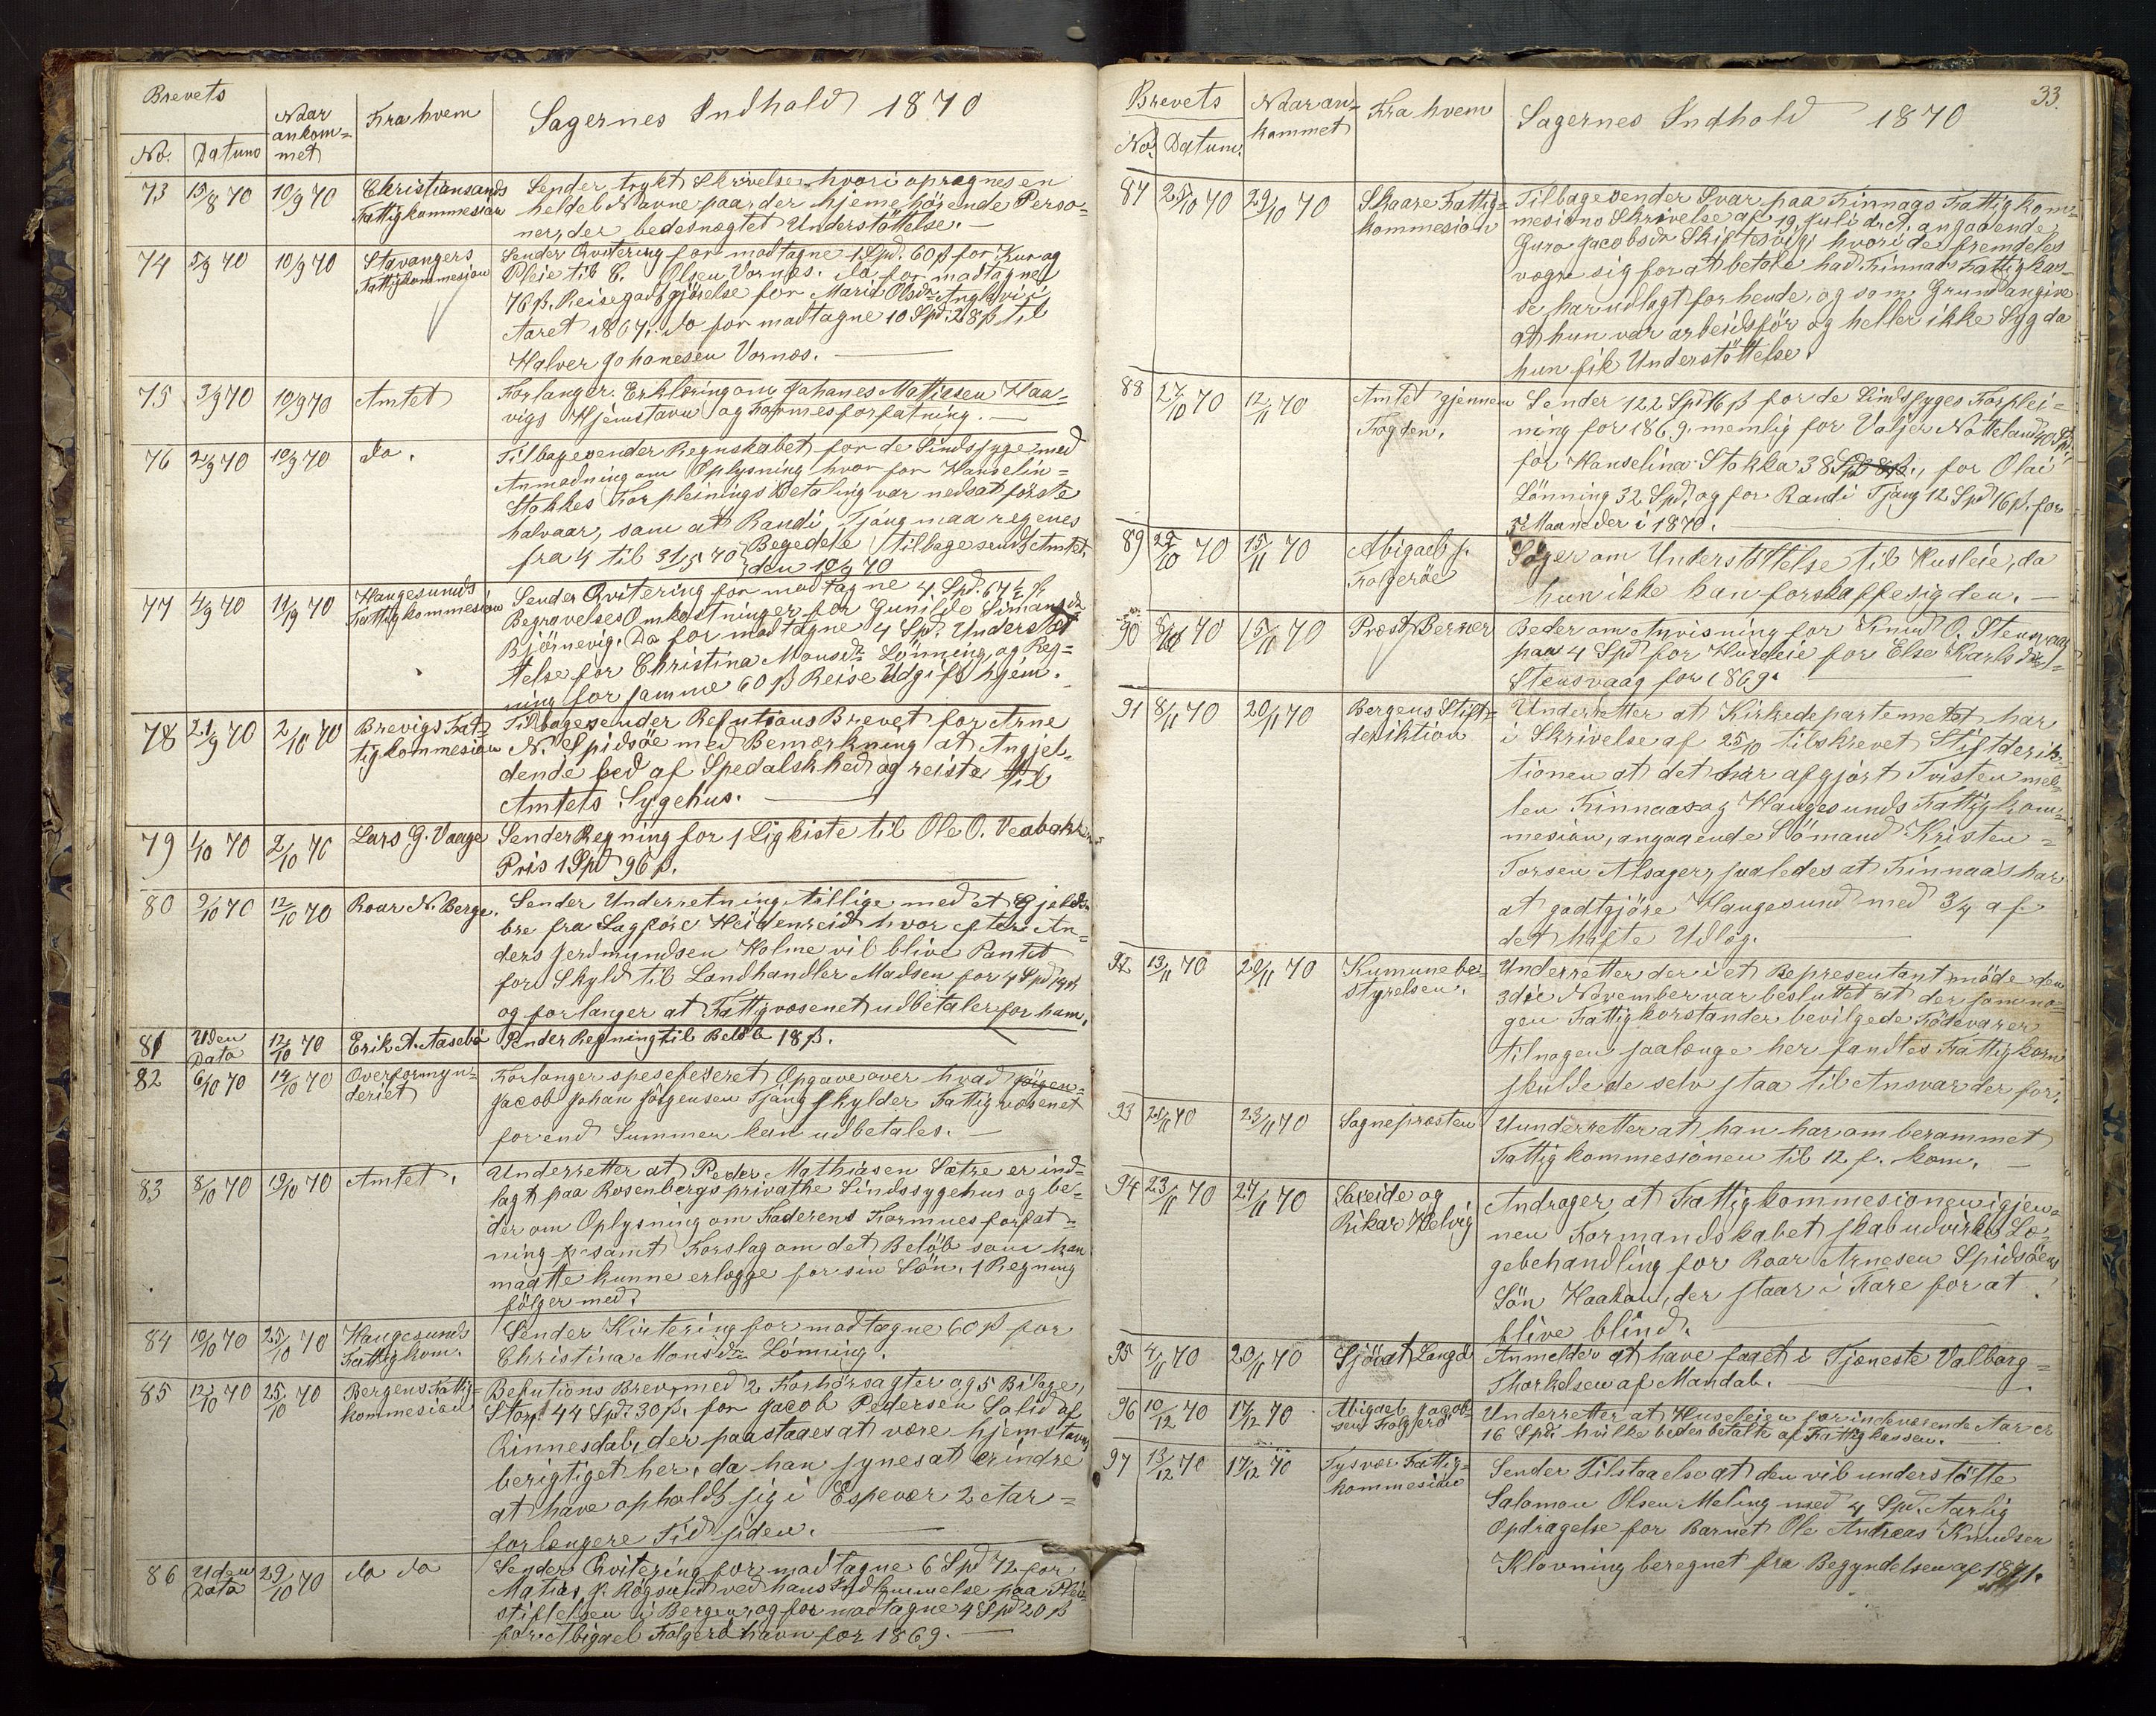 Brevets
No. Datum
Naar ankom=
met
Fra hvem
Sagernes Indhold 1870
73 15/8 70 10/9 70 Christiansands Fattigkommesion
Sender trykt Skrivelse hvori opregnes en
heldel Navne paa der hjemehörende Perso=
ner, der bedes nægtet Understöttelse. —
74 5/9 70 10/9 70 Stavangers Fattigkommesion
Sender Qvitering for modtagne 1 Spd. 60 ß for Kur og
Pleie til C. Olsen Vornes. Do for modtagne
76 ß. Reisegodtgjörelse for Marit Olsdr. Anglevi i
Aaret 1867. Do for modtagne 10 Spd. 28 ß til
Halver Johanesen Vornæs. —
75 3/9 70 10/9 70 Amtet
Forlanger Erklæring om Johanes Matiasen Haa=
vigs Hjemstavn og Formesforfatning. —
76 2/9 70 10/9 70 Do.
Tilbagesender Regnskabet for de Sindssyge med
Anmodning om Oplysning hvor for Hanselin=
Stokkes Forpleinings Betaling var nedsat förste
halvaar, samt at Randi Tjöng maa regenes
fra 1/4 til 31/5 70 Begedele tilbagesendt Amtet
den 12/9 70
77 4/9 70 11/9 70 Haugesunds Fattigkommesion
Sender Qvitering for modtagne 4 Spd. 67 1/2 ß
Begravelses Omkostninger for Gunilde Simonsdr
Björnevig. Do for modtagne 4 Spd. Understöt
telse for Christina Monsdr. Lönning, og Reg=
ning for samme 60 ß Reise Udgift hjem.
78 21/9 70 2/10 70 Brevigs Fat=
tigkommesion
Tilbagesender Refutions Brevet for Arne
N. Spidsöe med Bemærkning at Angjel=
dende led af Spedalskhed og reiste til
Amtets Sygehus. —
79 1/10 70 2/10 70 Lars G. Vaage
Sender Regning for 1 Ligkiste til Ole O. Veabakken
Pris 1 Spd 96 ß.
80 9/10 70 12/10 70 Roar N. Berge.
Sender Underretning tillige med et Gjelds=
bre fra Sagföre Heidenreid hvor efter An=
ders Jermundsen Holme vil blive Pantet
for Skyld til Landhandler Madsen for 4 Spd
og forlanger at Fattigvæsenet udbetaler for ham.
81 Uden Data 12/10 70 Erik A. Aasebö
Sender Regning til Belöb 18 ß.
82 6/10 70 14/10 70 Overformyn=
deriet
Forlanger spesefeseret Opgave over hvad
Jacob Johan Jörgensen Tjöng skylder Fattigvæsenet
forend Summen kan udbetales. —
83 8/10 70 19/10 70 Amtet.
Underretter at Peder Mathiasen Sætre er ind=
lagt paa Rosenbergs privathe Sindssygehus og be=
der om Oplysning om Faderens Formuesforfat=
ning samt Forslag om det Belöb som han
maatte kunne erlægge for sin Sön. 1 Regning
fölger med.
84 10/10 70 25/10 70 Haugesunds Fattigkom.
Sender Kvitering for modtagne 60 ß for
Christina Monsdr Lönning.
85 12/10 70 25/10 70 Bergens Fattig=
kommesion
Refutions Brev med 2 Forhörsagter og 5 Bilage,
Stor 44 Spd: 30 ß. for Jacob Pedersen Salid af
Kinnesdal, der paastaaes at være hjemstavns
berigtiget her, da han synes at erindre
at have opholdt sig i Espevær 2 Aar=
for længere Tid siden. —
86 Uden Data 29/10 70 do do
Sender Qvitering for modtagne 6 Spd 72 for
Matias J. Högsund ved hans Indlemmelse paa Pleie=
stiftelsen i Bergen, og for modtagne 4 Spd 20 ß
for Abigael Folgeröhavn for 1869. —
33.
Brevets
No. Datum.
Naar an=
kommet
Fra hvem
Sagernes Indhold 1870
87 25/10 70 29/10 70 Skaare Fattig=
kommesion
Tilbagesender Svar paa Finnaas Fattigkom=
mesions Skrivelse af 19 Juli d. A. angaaende
Guro Jacobsdr Skiftesvig; hvori de fremdeles
vegre sig for at betale had Finnaas Fattigkas=
se har udlagt for hende, og som Grund angive
at hun var arbeidsför og heller ikke Syg da
hun fik Understöttelse.
88 27/10 70 12/11 70 Amtet gjennem
Fogden.
Sender 122 Spd 16 ß for de Sindssyges Forplei=
ning for 1869. nemlig for Valjer Nötteland 40 Spd,
for Hanselina Stokka 38 Spd, for Olai
Lönning 32 Spd. og for Randi Tjöng 12 Spd 16 ß. for
5 Maaneder i 1870.
89 29/10 70 15/11 70 Abigael J.
Folgeröe
Söger om Understöttelse til Husleie, da
hun ikke kan forskaffe sig den. —
90 8/11 70 15/11 70 Præst Berner
Beder om Anvisning for Knud O. Stensvaag
paa 4 Spd for Husleie for Else Larsdr
Stensvaag for 1869.
91 8/11 70 20/11 70 Bergens Stift=
deriktion
Underretter at Kirkedepartemetet har
i Skrivelse af 25/10 tilskrevet Stiftderik=
tionen at det har afgjort Tvisten mel=
len Finnaas og Haugesunds Fattigkom=
mesion, angaaende Sömand Kristen=
Torsen Alsager, saaledes at Finnaas har
at godtgjöre Haugesund med 3/4 af
det hafte Udlæg. —
92 13/11 70 20/11 70 Kumunebe=
styrelsen.
Underretter der i et Representantmöde den
3die November var besluttet at der som no=
gen Fattigforstander bevilgede Födevarer
til nogen saalænge her fandtes Fattigkorn
skulde de selv staa til Ansvar der for.
93 21/11 70 23/11 70 Sognepræsten
Uunderretter at han har om berammet
Fattigkommesionen til 12 f. kom. —
94 23/11 70 27/11 70 Sæeide og
Rikar Helvig
Androger at Fattigkommesionen igjen=
nem Formandskabet skal udvirke Læ=
gebehandling for Roar Arnesen Spidsöens
Sön Haakon, der staar i Fare for at
blive blind. —
95 4/11 70 20/11 70 Sjövat Langd
Anmelder at have faaet i Tjeneste Valborg=
Thorkelsen af Mandal. —
96 10/12 70 17/12 70 Abigael Jacob=
sen Folgerö
Underretter at Huseleien for indeværende Aar er
16 Spd. hvilke bedes betalte af Fattigkassen.
97 13/12 70 17/12 70 Tysvær Fattig=
kommesion
Sender Tilstaaelse at den vil understötte
Salomon Olsen Meling med 4 Spd. Aarlig
Opdragelse for Barnet Ole Andreas Knudsen
Klovning beregnet fra Begyndelsen af 1871.